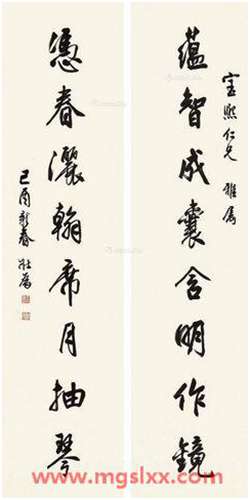 熙仁兄 雅属
蘊智成囊含明作鏡
憑春灑翰席月抽琴
己酉新春 壯為
www.mgslxx.com